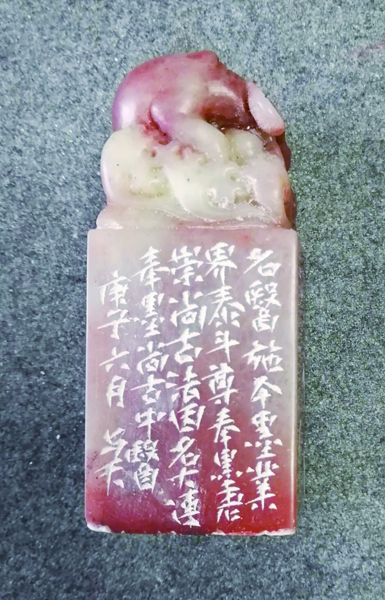 名醫施本墨業
界泰斗尊奉墨
崇尚古法因名大連
奉墨尚古中醫
庚子六月